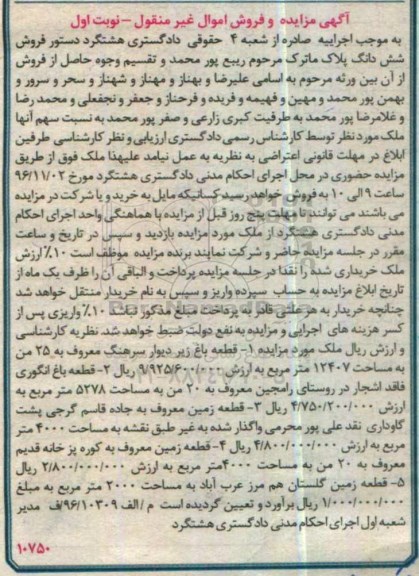 آگهی مزایده و فروش اموال غیر منقول – نوبت اول
به موجب اجراییه صادره از شعبه ۴ حقوقی دادگستری هشتگرد دستور فروش
شش دانگ پلاک ماترک مرحوم ربیع پور محمد و تقسیم وجوه حاصل از فروش
از آن بین ورثه مرحوم به اسامی علیرضا و بهناز و مهناز و شهناز و سحر و سرور و
بهمن پور محمد و مهین و فهیمه و فریده و فرحناز و جعفر و نجفعلی و محمد رضا
و غلامرضا پور محمد به طرفیت کبری زارعی و صفر پور محمد به نسبت سهم آنها
ملک مورد نظر توسط کارشناس رسمی دادگستری ارزیابی و نظر کارشناسی طرفین
ابلاغ در مهلت قانونی اعتراضی به نظریه به عمل نیامد علیهذا ملک فوق از طریق
مزایده حضوری در محل اجرای احکام مدنی دادگستری هشتگرد مورخ ۹۶/۱۱/۰۲
ساعت ۹ الی ۱۰ به فروش خواهد رسید کسانیکه مایل به خرید و یا شرکت در مزایده
می باشند می توانند تا مهلت پنج روز قبل از مزایده با هماهنگی واحد اجرای احکام
مدنی دادگستری هشتگرد از ملک مورد مزایده بازدید و سپس در تاریخ و ساعت
مقرر در جلسه مزایده حاضر و شرکت نمایند برنده مزایده موظف است ۱۰٪ ارزش
ملک خریداری شده را نقدا در جلسه مزایده پرداخت و الباقی آن را ظرف یک ماه از
تاریخ ابلاغ مزایده به حساب سپرده واریز و سپس به نام خریدار منتقل خواهد شد
چنانچه خریدار به هر علتی قادر به پرداخت مبلغ مذکور نباشد ۱۰٪ واریزی پس از
کسر هزینه های اجرایی و مزایده به نفع دولت ضبط خواهد شد. نظریه کارشناسی
و ارزش ریال ملک مورد مزایده ۱- قطعه باغ زیر دیوار سرهنگ معروف به ۲۵ من
به مساحت ۱۲۴۰۷ متر مربع به ارزش ۹/۹۲۵/۶۰۰/۰۰۰ ریال ۲- قطعه باغ انگوری
فاقد اشجار در روستای رامجین معروف به ۲۰ من به مساحت ۵۲۷۸ متر مربع به
ارزش ۴/۷۵۰/۲۰۰/۰۰۰ ریال ۳- قطعه زمین معروف به جاده قاسم گرجی پشت
گاوداری نقد علی پور محرمی واگذار شده به غیر طبق نقشه به مساحت ۴۰۰۰ متر
مربع به ارزش ۴/۸۰۰/۰۰۰/۰۰۰ ریال ۴- قطعه زمین معروف به کوره پز خانه قدیم
معروف به ۲۰ من به مساحت ۴۰۰۰ متر مربع به ارزش ۲/۸۰۰/۰۰۰/۰۰۰ ریال
۵- قطعه زمین گلستان هم مرز عرب آباد به مساحت ۲۰۰۰ متر مربع به مبلغ
۱/۰۰۰/۰۰۰/۰۰۰ ریال برآورد و تعیین گردیده است م / الف ۹۶/۱۰۳۰۹/ف مدیر
شعبه اول اجرای احکام مدنی دادگستری هشتگرد
۱۰۷۵۰